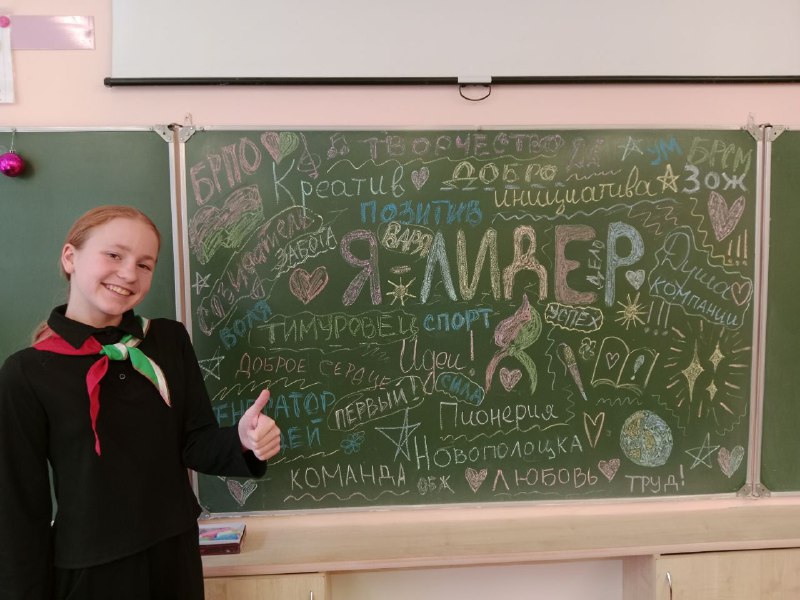 БРПО
ТВОРЧЕСТВО
УМ
БРСМ
Креатив
ДОБРО
ИНИЦИАТИВА
ЗОЖ
ПОЗИТИВ
СОЗИДАТЕЛЬ
ЗАБОТА
ВАРЯ
Я-ЛИДЕР
ДЕЛО
Душа
КОМПАНИИ
ВОЛЯ
ТИМУРОВЕЦ
СПОРТ
УСПЕХ
!!!
!!!
Идеи!
ДОБРОЕ СЕРДЦЕ
СИЛА
ПЕРВЫЙ!
Пионерия
Новополоцка
КОМАНДА
ОБЖ
ЛЮБОВЬ
ТРУД!